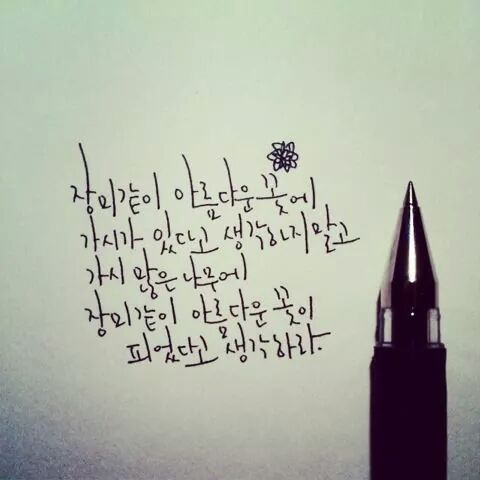 장미같이 아름다운 꽃에
가시가 있다고 생각하지말고
가시 많은 나무에
장미같이 아름다운 꽃이
피었다고 생각하라.